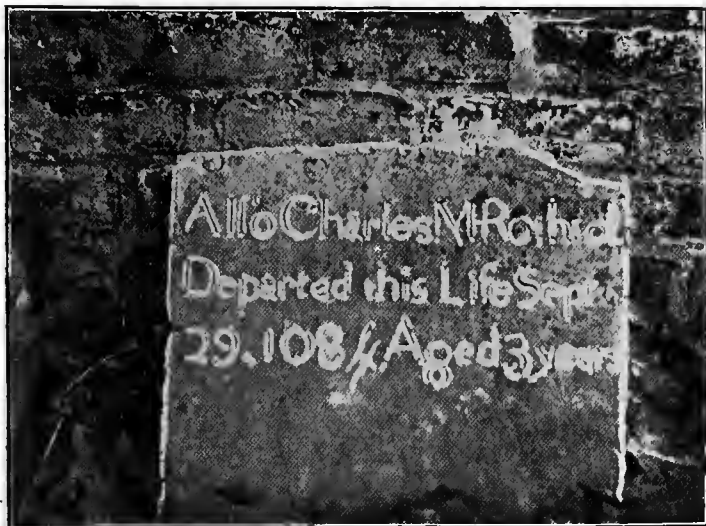 Alſo Charles M
Departed this Life Septr
29.1084. Aged 3 years